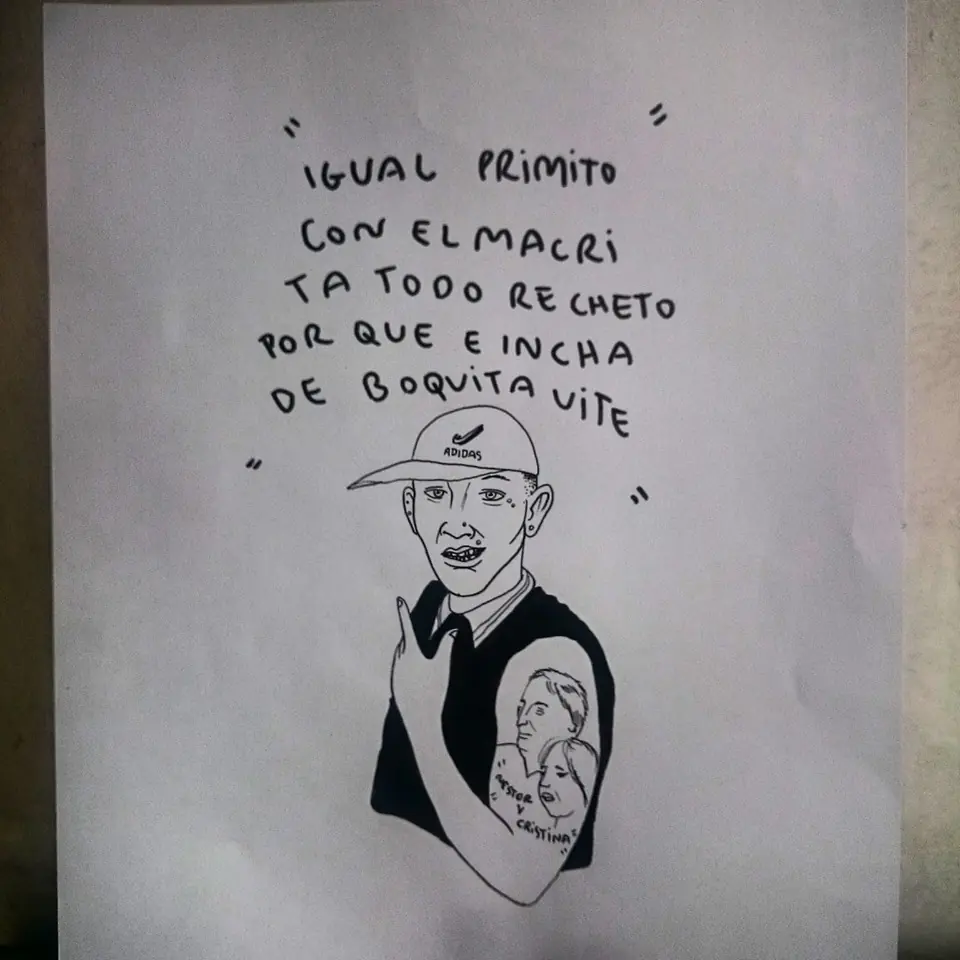 "IGUAL PRIMITO
CON EL MACRI
TA TODO RE CHETO
POR QUE E INCHA
DE BOQUITA VITE"
ADIDAS
"NESTOR
Y
CRISTINA"